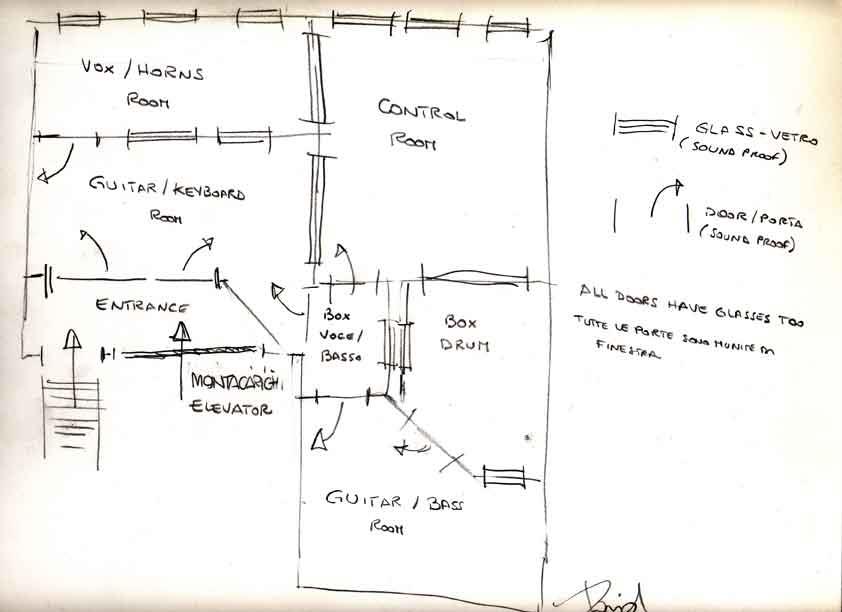 VOX / HORNS
ROOM
CONTROL
ROOM
GUITAR / KEYBOARD
ROOM
ENTRANCE
MONTACARICHI
ELEVATOR
BOX
VOCE /
BASSO
BOX
DRUM
GUITAR / BASS
ROOM
GLASS - VETRO
(SOUND PROOF)
DOOR / PORTA
(SOUND PROOF)
ALL DOORS HAVE GLASSES TOO
TUTTE LE PORTE SONO MUNITE DI
FINESTRA